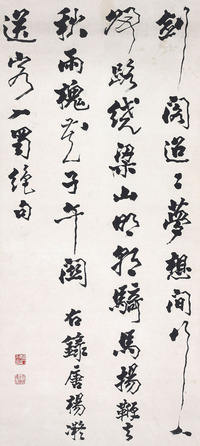 劍閣迢〻夢想間行人
歸路繞梁山明朝騎馬揚鞭去
秋雨槐花子午關 右錄唐楊凝
送客入蜀絕句